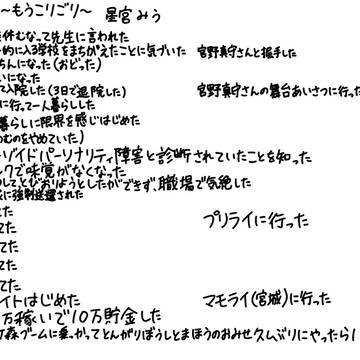 〜もうこりごり〜 星宮みう
休むなって先生に言われた
的に入る学校をまちがえたことに気づいた 宮野真守さんと握手した
ちんになった(おどった)
いになった
て入院した(3日で退院した) 宮野真守さんの舞台あいさつに行った
に行って一人暮らしした
暮らしに限界を感じはじめた
むのをやめていた)
ゾイドパーソナリティ障害と診断されていたことを知った
クで味覚がなくなった
してとびおりようとしたができず、職場で気絶した
に強制送還された
た
てた プリライに行った
てた
てた
てた
イトはじめた マモライ(宮城)に行った
万稼いで10万貯金した
森ブームに乗っかってとんがりぼうしとまほうのおみせ久しぶりにやったら